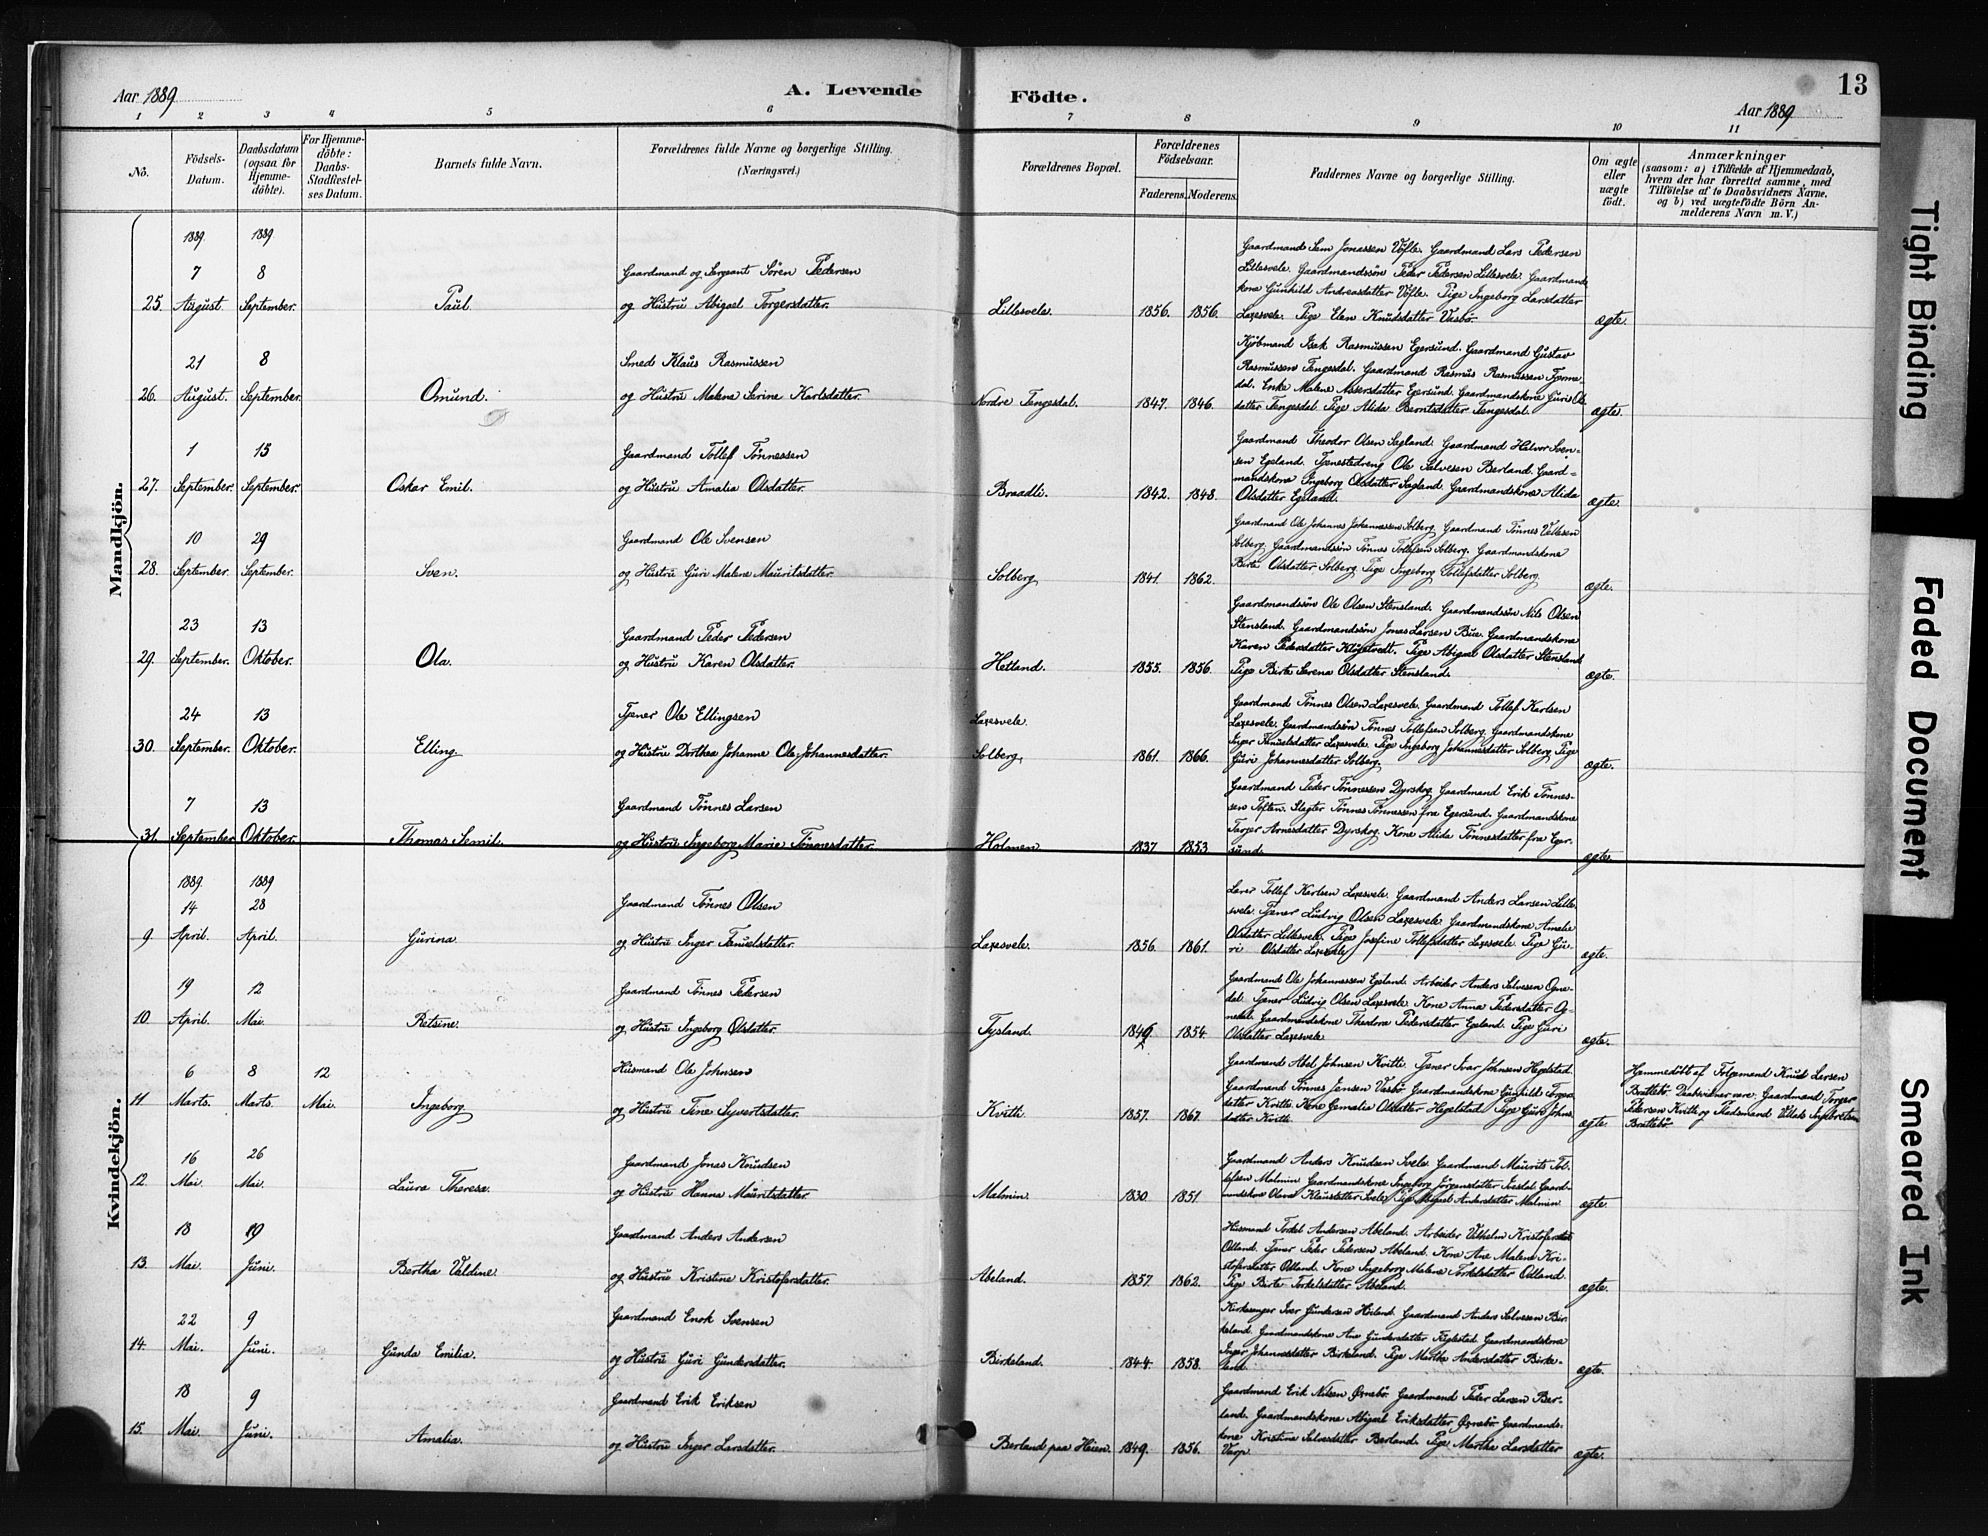 Aar 1889
A. Levende
Födte.
13
Aar 1889
1 2 3 4 5 6 7 8 9 10 11
No.
Födsels-
Datum.
Daabsdatum
(ogsaa for
Hjemme-
döbte).
For Hjemme-
döbte:
Daabs-
Stadfæstel-
ses Datum.
Barnets fulde Navn.
Forældrenes fulde Navne og borgerlige Stilling.
(Næringsvei.)
Forældrenes Bopæl.
Forældrenes
Födselsaar.
Faderens. Moderens.
Faddernes Navne og borgerlige Stilling.
Om ægte
eller
uægte
födt.
Anmærkninger
(saasom: a) i Tilfælde af Hjemmedaab,
hvem der har forrettet samme, med
Tilföielse af to Daabsvidners Navne,
og b) ved uægtefödte Börn An-
melderens Navn m. V.)
Mandkjön.
1889. 1889
7 8 Gaardmand og Sergeant Sören Pedersen
25. August. September. Paul. og Hustru Abigael Torgersdatter. Lillesvele. 1856. 1856. ægte.
Gaardmand Sem Jonassen Vöfle. Gaardmand Lars Pedersen
Lillesvele. Gaardmandssön Peder Pedersen Lillesvele. Gaardmands
kone Gunhild Andreasdatter Vöfle. Pige Ingeborg Larsdatter
Laxesvele. Pige Elen Knudsdatter Vasbö.
21 8 Smed Klaus Rasmussen
26. August. September. Omund. og Hustru Malene Serine Karlsdatter. Nordre Tengesdal. 1847. 1846. ægte.
Kjöbmand Isak Rasmussen Egersund. Gaardmand Gustav
Rasmussen Tengesdal. Gaardmand Rasmus Rasmussen
dal. Enke Malene Assersdatter Egersund. Gaardmandskone Guri Ols
datter Tengesdal. Pige Alida Berntsdatter Tengesdal.
1 15 Gaardmand Tollef Tönnessen
27. September. September. Oskar Emil. og Hustru Amalia Olsdatter. Braadli. 1842. 1848. ægte.
Gaardmand Theodor Olsen Sagland. Gaardmand Halvor Sven-
sen Egeland. Tjenestedreng Ole Salvesen Berland. Gaard-
mandskone Ingeborg Olsdatter Sagland. Gaardmandskone Alida
Olsdatter Egeland.
10 29 Gaardmand Ole Svensen
28. September. September. Sven. og Hustru Guri Malene Mauritsdatter. Solberg 1841. 1862. ægte.
Gaardmand Ole Johannes Johannessen Solberg. Gaardmand Tönnes
Solberg. Gaardmandssön Tönnes Tollefsen Solberg. Gaardmandskone
Birte Olsdatter Solberg. Pige Ingeborg Tollefsdatter Solberg.
23 13 Gaardmand Peder Pedersen
29. September. Oktober. Ola. og Hustru Karen Olsdatter. Hetland. 1855. 1856. ægte.
Gaardmandssön Ole Olsen Stensland. Gaardmandssön Nils Olsen
Stensland. Gaardmandssön Jonas Larsen Bue. Gaardmandskone
Karen Pedersdatter Klugtvedt. Pige Abigael Olsdatter Stensland
Pige Birte Serena Olsdatter Stensland.
24 13 Tjener Ole Ellingsen Laxesvele.
30. September. Oktober. Elling og Hustru Dorthea Johanne Ole Johannesdatter. Solberg. 1861. 1866. ægte.
Gaardmand Tönnes Olsen Laxesvele. Gaardmand Tollef Karlsen
Laxesvele. Gaardmandssön Tönnes Tollefsen Solberg. Gaardmandskone
Inger Knuelsdatter Laxesvele. Pige Ingeborg Johannesdatter Solberg. Pige
Guri Johannesdatter Solberg.
7 13 Gaardmand Tönnes Larsen
31. September Oktober. Thomas Semil. og Hustru Ingeborg Marie Tönnesdatter. Holmen 1837 1853. ægte.
Gaardmand Peder Tönnessen Dyrskog. Gaardmand Erik Tönnes-
sen Toften. Slagter Tönnes Tönnessen fra Egersund. Gaardmandskone
Torger Arnesdatter Dyrskog. Kone Alida Tönnesdatter fra Eger-
sund.
Kvindekjön.
1889. 1889
14 28 Gaardmand Tönnes Olsen
9 April. April. Gurina. og Hustru Inger Tanuelsdatter. Laxesvele. 1856. 1861. ægte.
Lærer Tollef Karlsen Laxesvele. Gaardmand Anders Larsen Lille-
svele. Tjener Ludvig Olsen Laxesvele. Gaardmandskone Amalie
Olsdatter Lillesvele. Pige Josefine Tollefsdatter Laxesvele. Pige Gu-
ri Olsdatter Laxesvele.
19 12 Gaardmand Tönnes Pedersen
10. April. Mai. Retsine. og Hustru Ingeborg Olsdatter. Tysland. 1849 1854. ægte.
Gaardmand Ole Johannessen Egeland. Arbeider Anders Salvesen Ogne-
dal. Tjener Ludvig Olsen Laxesvele. Kone Anna Pedersdatter Og-
nedal. Gaardmandskone Theodora Pedersdatter Egeland. Pige Guri
Olsdatter Laxesvele.
6 8 12 Husmand Ole Johnsen
11 Marts. Marts. Mai. Ingeborg og Hustru Tine Syvertsdatter. Kvitti. 1857. 1867. ægte.
Gaardmand Abel Johnsen Kvitti. Tjener Ivar Johnsen Hegelstad.
Gaardmand Tönnes Jensen Vasbö. Gaardmandskone Gunhild Torgers
datter Kvitti. Kone Gemalia Olsdatter Hegelstad. Pige Guri Johns
datter Kvitti.
Hjemmedöbt af Folgemand Knud Larsen
Brattebö. Daabsvidner vare: Gaardmand Torger
Pedersen Kvitti og Pladsmand Villads Ingebretsen
Brattebö.
16 26 Gaardmand Jonas Knudsen
12. Mai. Mai. Laura Theresa. og Hustru Hanna Mauritsdatter Malmin. 1830 1851. ægte.
Gaardmand Anders Knudsen Svele. Gaardmand Maurits Tol-
lefsen Malmin. Gaardmandskone Ingeborg Jörgensdatter Aresdal. Gaard-
mandskone Olene Klausdatter Svele. Pige Abigael Andersdatter Malmin
18 19 Gaardmand Anders Andersen
13. Mai. Juni. Bertha Valdine. og Hustru Kristine Kristofersdatter. Abeland. 1857. 1862. ægte.
Husmand Torkel Andersen Abeland. Arbeider Vilhelm Kristofersen
Odland. Tjener Peder Pedersen Abeland. Kone Ane Malene Kri-
stofersdatter Odland. Kone Ingeborg Malene Torkelsdatter Odland.
Pige Birte Torkelsdatter Abeland.
22 9 Gaardmand Enok Svensen
14. Mai. Juni. Gunda Emilia. og Hustru Guri Gundersdatter. Birkeland. 1844. 1858. ægte.
Kirkesanger Iver Gundersen Höiland. Gaardmand Anders Salvesen Bir-
keland. Gaardmandskone Ane Gundersdatter Fuglestad. Gaardmandskone
Inger Johannesdatter Birkeland. Pige Martha Andersdatter Birke-
land.
18 9 Gaardmand Erik Eriksen
15. Mai. Juni. Amalia. og Hustru Inger Larsdatter. Berland paa Heien. 1849. 1856. ægte.
Gaardmand Erik Nilsen Ørnebö. Gaardmand Peder Larsen Ber-
land. Gaardmandskone Abigael Eriksdatter Ørnebö. Gaardmands-
kone Kristine Salvesdatter Berland. Pige Martha Larsdatter
Varp.
Tight Binding
Faded Document
Smeared Ink